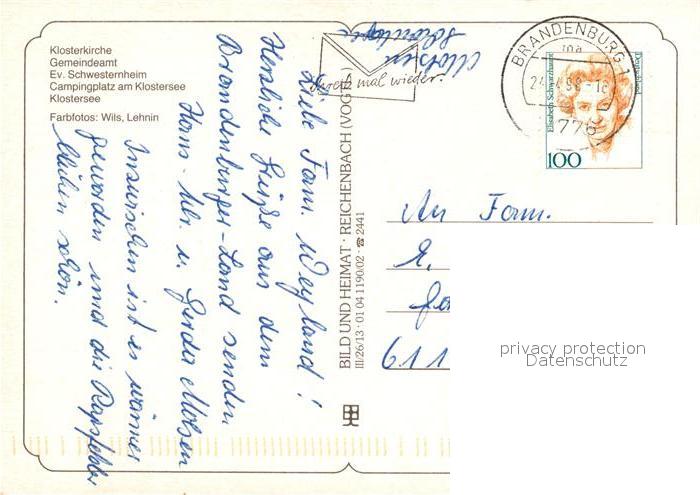 Klosterkirche
Gemeindeamt
Ev. Schwesternheim
Campingplatz am Klostersee
Klostersee
Farbfotos: Wils, Lehnin
Liebe Fam. Weyland!
Herzliche Grüße aus dem
Brandenburger-Land senden
Hans- u. Gerda
Inzwischen ist es wärmer
geworden und die Rapsfelder
blühen schön.
BILD UND HEIMAT · REICHENBACH (VOGTL)
III/26/13 · 01 04 1190/02 · ☎ 2441
mal wieder.
BRANDENBURG 1
Deutschland
Elisabeth Schwarzhaupt
100
An Fam.
E.
611
privacy protection
Datenschutz